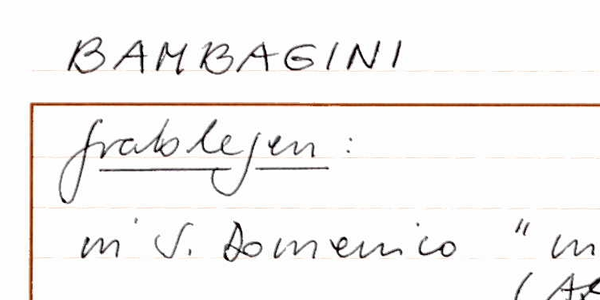 BAMBAGINI
Grablegen :
in S. Domenico " in
(